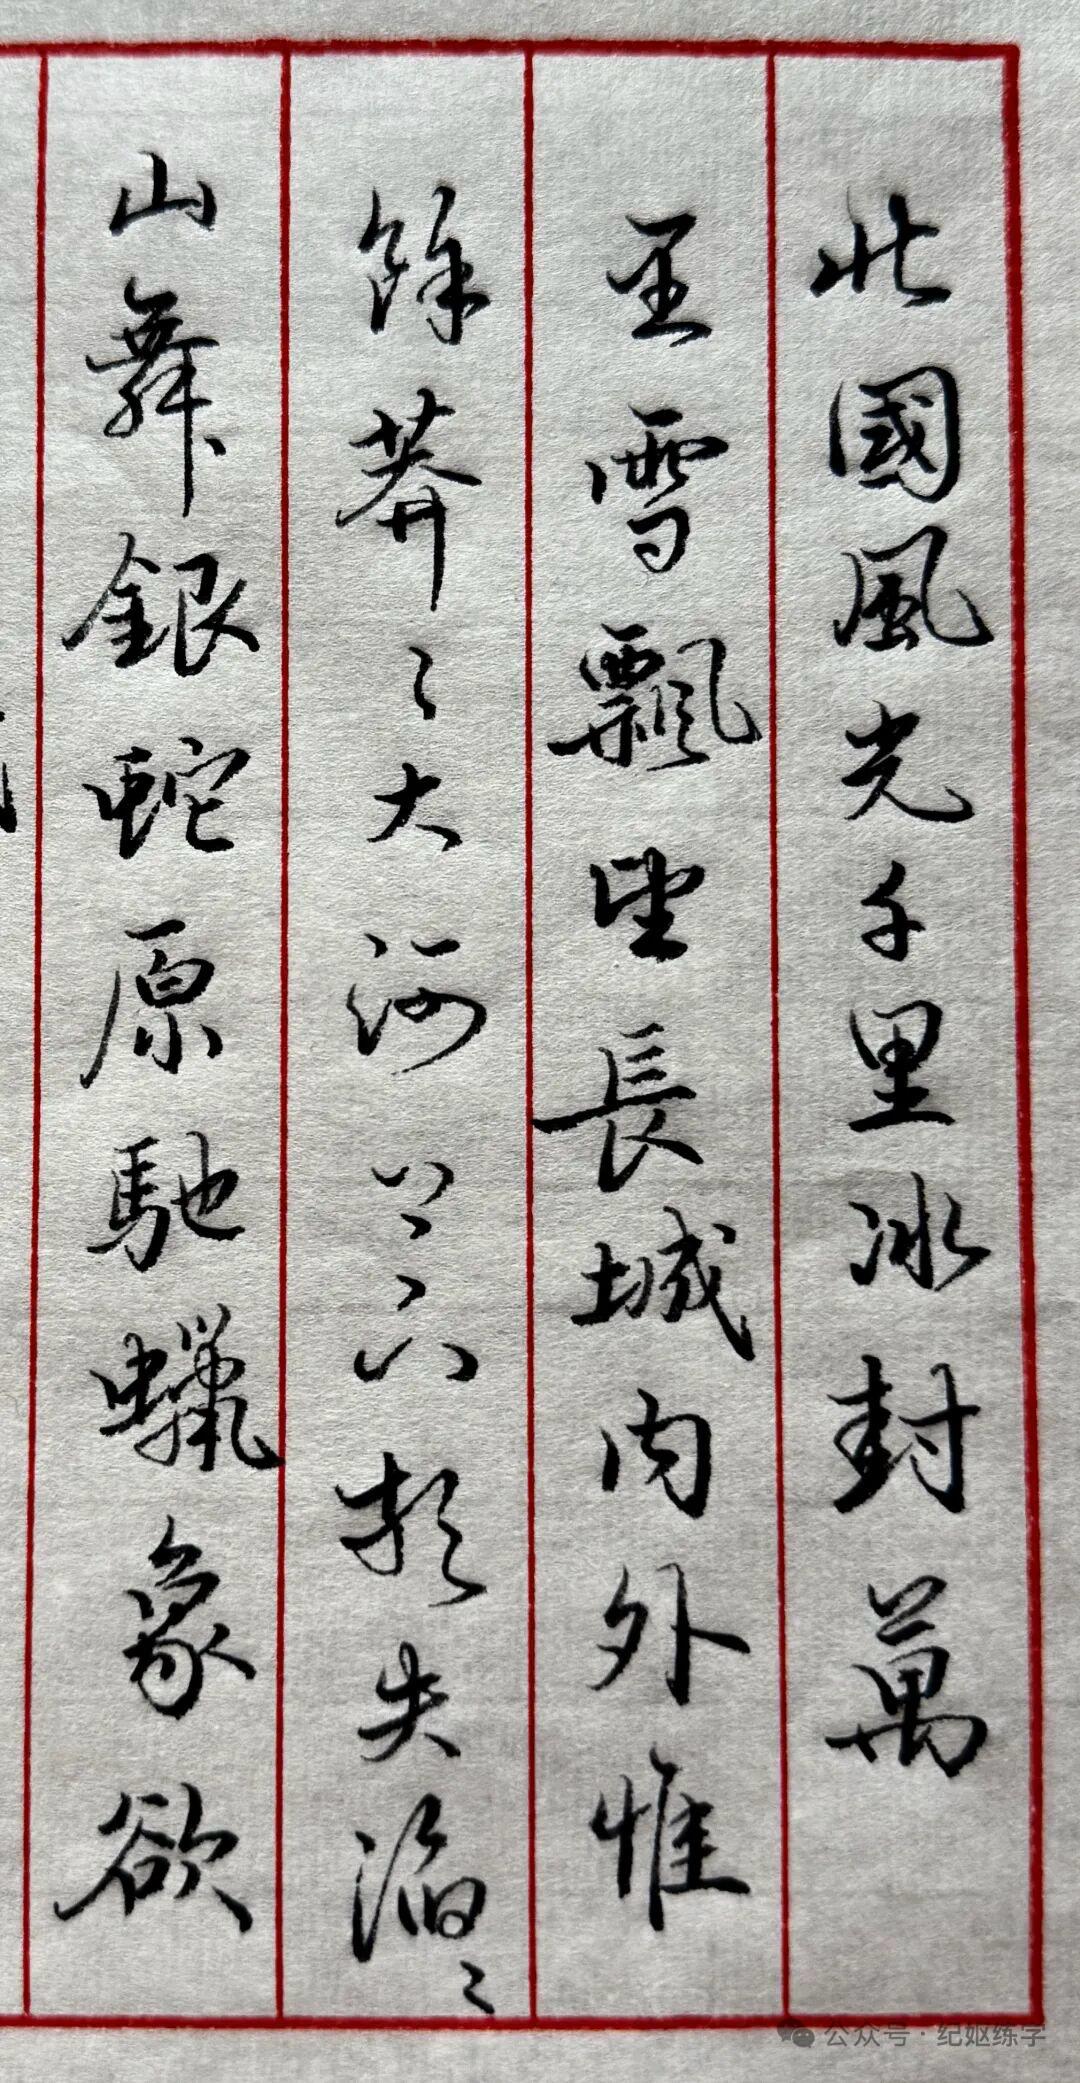 北國風光千里冰封萬
里雪飄望長城内外惟
餘莽々大河上下頓失滔々
山舞銀蛇原馳蠟象欲
公众号·纪妪练字